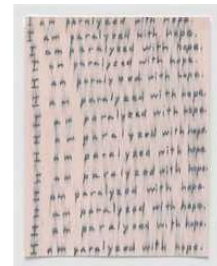 I am paralyzed with hope.
I am paralyzed with hope.
I am paralyzed with hope.
I am paralyzed with hope.
I am paralyzed with hope.
I am paralyzed with hope.
I am paralyzed with hope.
I am paralyzed with hope.
I am paralyzed with hope.
I am paralyzed with hope.
I am paralyzed with hope.
I am paralyzed with hope.
I am paralyzed with hope.
I am paralyzed with hope.
I am paralyzed with hope.
I am paralyzed with hope.
I am paralyzed with hope.